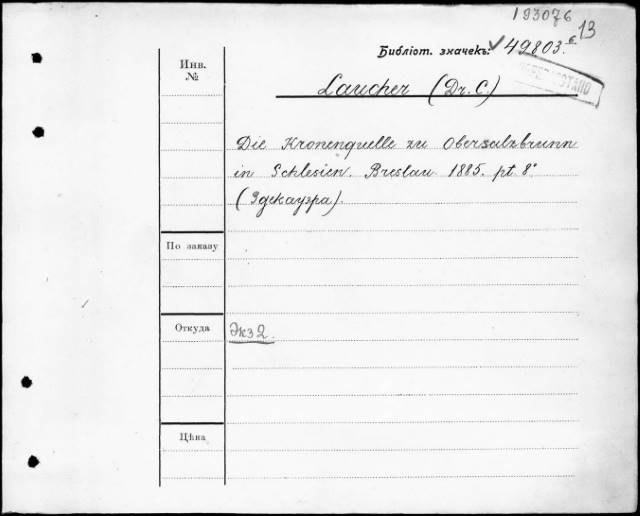 193076
13
Библiот. значекъ: √ 49803.б
ПЕРЕРАБОТАНО
Инв.
№
Laucher (Dr. C)
Die Kronenquelle zu Obersalzbrunn
in Schlesien. Breslau. 1885. pt. 8°
(Эдекауэра).
По заказу
Откуда
Экз 2.
Цѣна